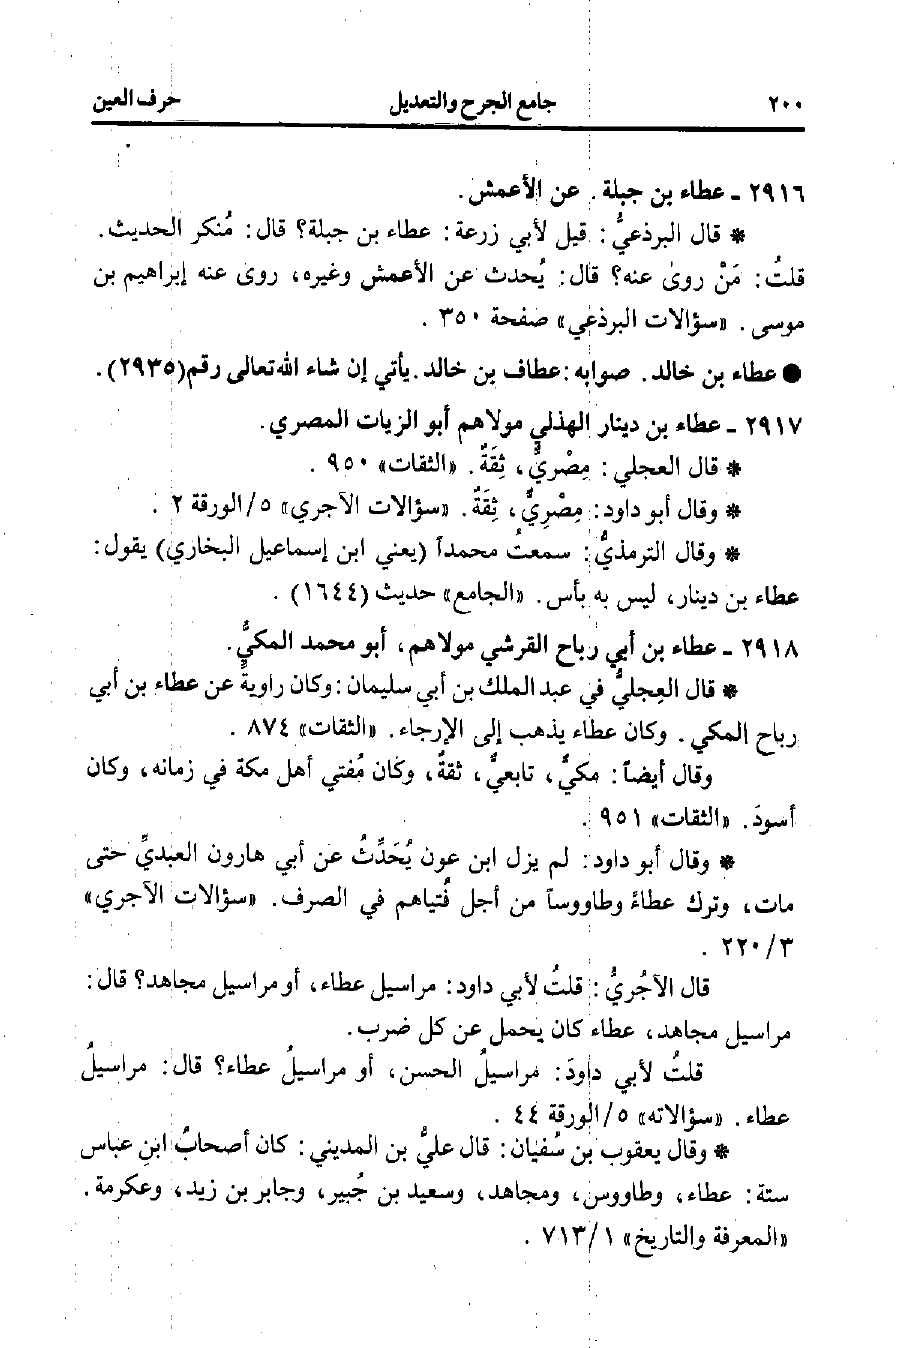 ٢٠٠ جامع الجرح والتعديل حرف العين
٢٩١٦ ـ عطاء بن جبلة. عن الأعمش.
* قال البرذعيُّ: قيل لأبي زرعة: عطاء بن جبلة؟ قال: مُنكر الحديث.
قلتُ: مَنْ روىٰ عنه؟ قال: يُحدث عن الأعمش وغيره، روى عنه إبراهيم بن
موسى. «سؤالات البرذعي» صفحة ٣٥٠.
● عطاء بن خالد. صوابه: عطاف بن خالد. يأتي إن شاء الله تعالى رقم (٢٩٣٥).
٢٩١٧ ـ عطاء بن دينار الهذلي مولاهم أبو الزيات المصري.
* قال العجلي: مِصْريٌّ، ثِقَةٌ. «الثقات» ٩٥٠.
* وقال أبو داود: مِصْرِيٌّ، ثِقَةٌ. «سؤالات الآجري» ٥/الورقة ٢.
* وقال الترمذيُّ: سمعتُ محمداً (يعني ابن إسماعيل البخاري) يقول:
عطاء بن دينار، ليس به بأس. «الجامع» حديث (١٦٤٤).
٢٩١٨ ـ عطاء بن أبي رباح القرشي مولاهم، أبو محمد المكيُّ.
* قال العِجليُّ في عبد الملك بن أبي سليمان: وكان راويةً عن عطاء بن أبي
رباح المكي. وكان عطاء يذهب إلى الإرجاء. «الثقات» ٨٧٤.
وقال أيضاً: مكيٌّ، تابعيٌّ، ثقةٌ، وكان مُفتي أهل مكة في زمانه، وكان
أسودَ. «الثقات» ٩٥١.
* وقال أبو داود: لم يزل ابن عون يُحَدِّثُ عن أبي هارون العبديِّ حتى
مات، وترك عطاءً وطاووساً من أجل فُتياهم في الصرف. «سؤالات الآجري»
٣/٢٢٠.
قال الآجُريُّ: قلتُ لأبي داود: مراسيل عطاء، أو مراسيل مجاهد؟ قال:
مراسيل مجاهد، عطاء كان يحمل عن كل ضرب.
قلتُ لأبي داودَ: مراسيلُ الحسن، أو مراسيلُ عطاء؟ قال: مراسيلُ
عطاء. «سؤالاته» ٥/الورقة ٤٤.
* وقال يعقوب بن سُفيان: قال عليُّ بن المديني: كان أصحابُ ابنِ عباس
ستة: عطاء، وطاووس، ومجاهد، وسعيد بن جُبير، وجابر بن زيد، وعكرمة.
«المعرفة والتاريخ» ١/٧١٣.